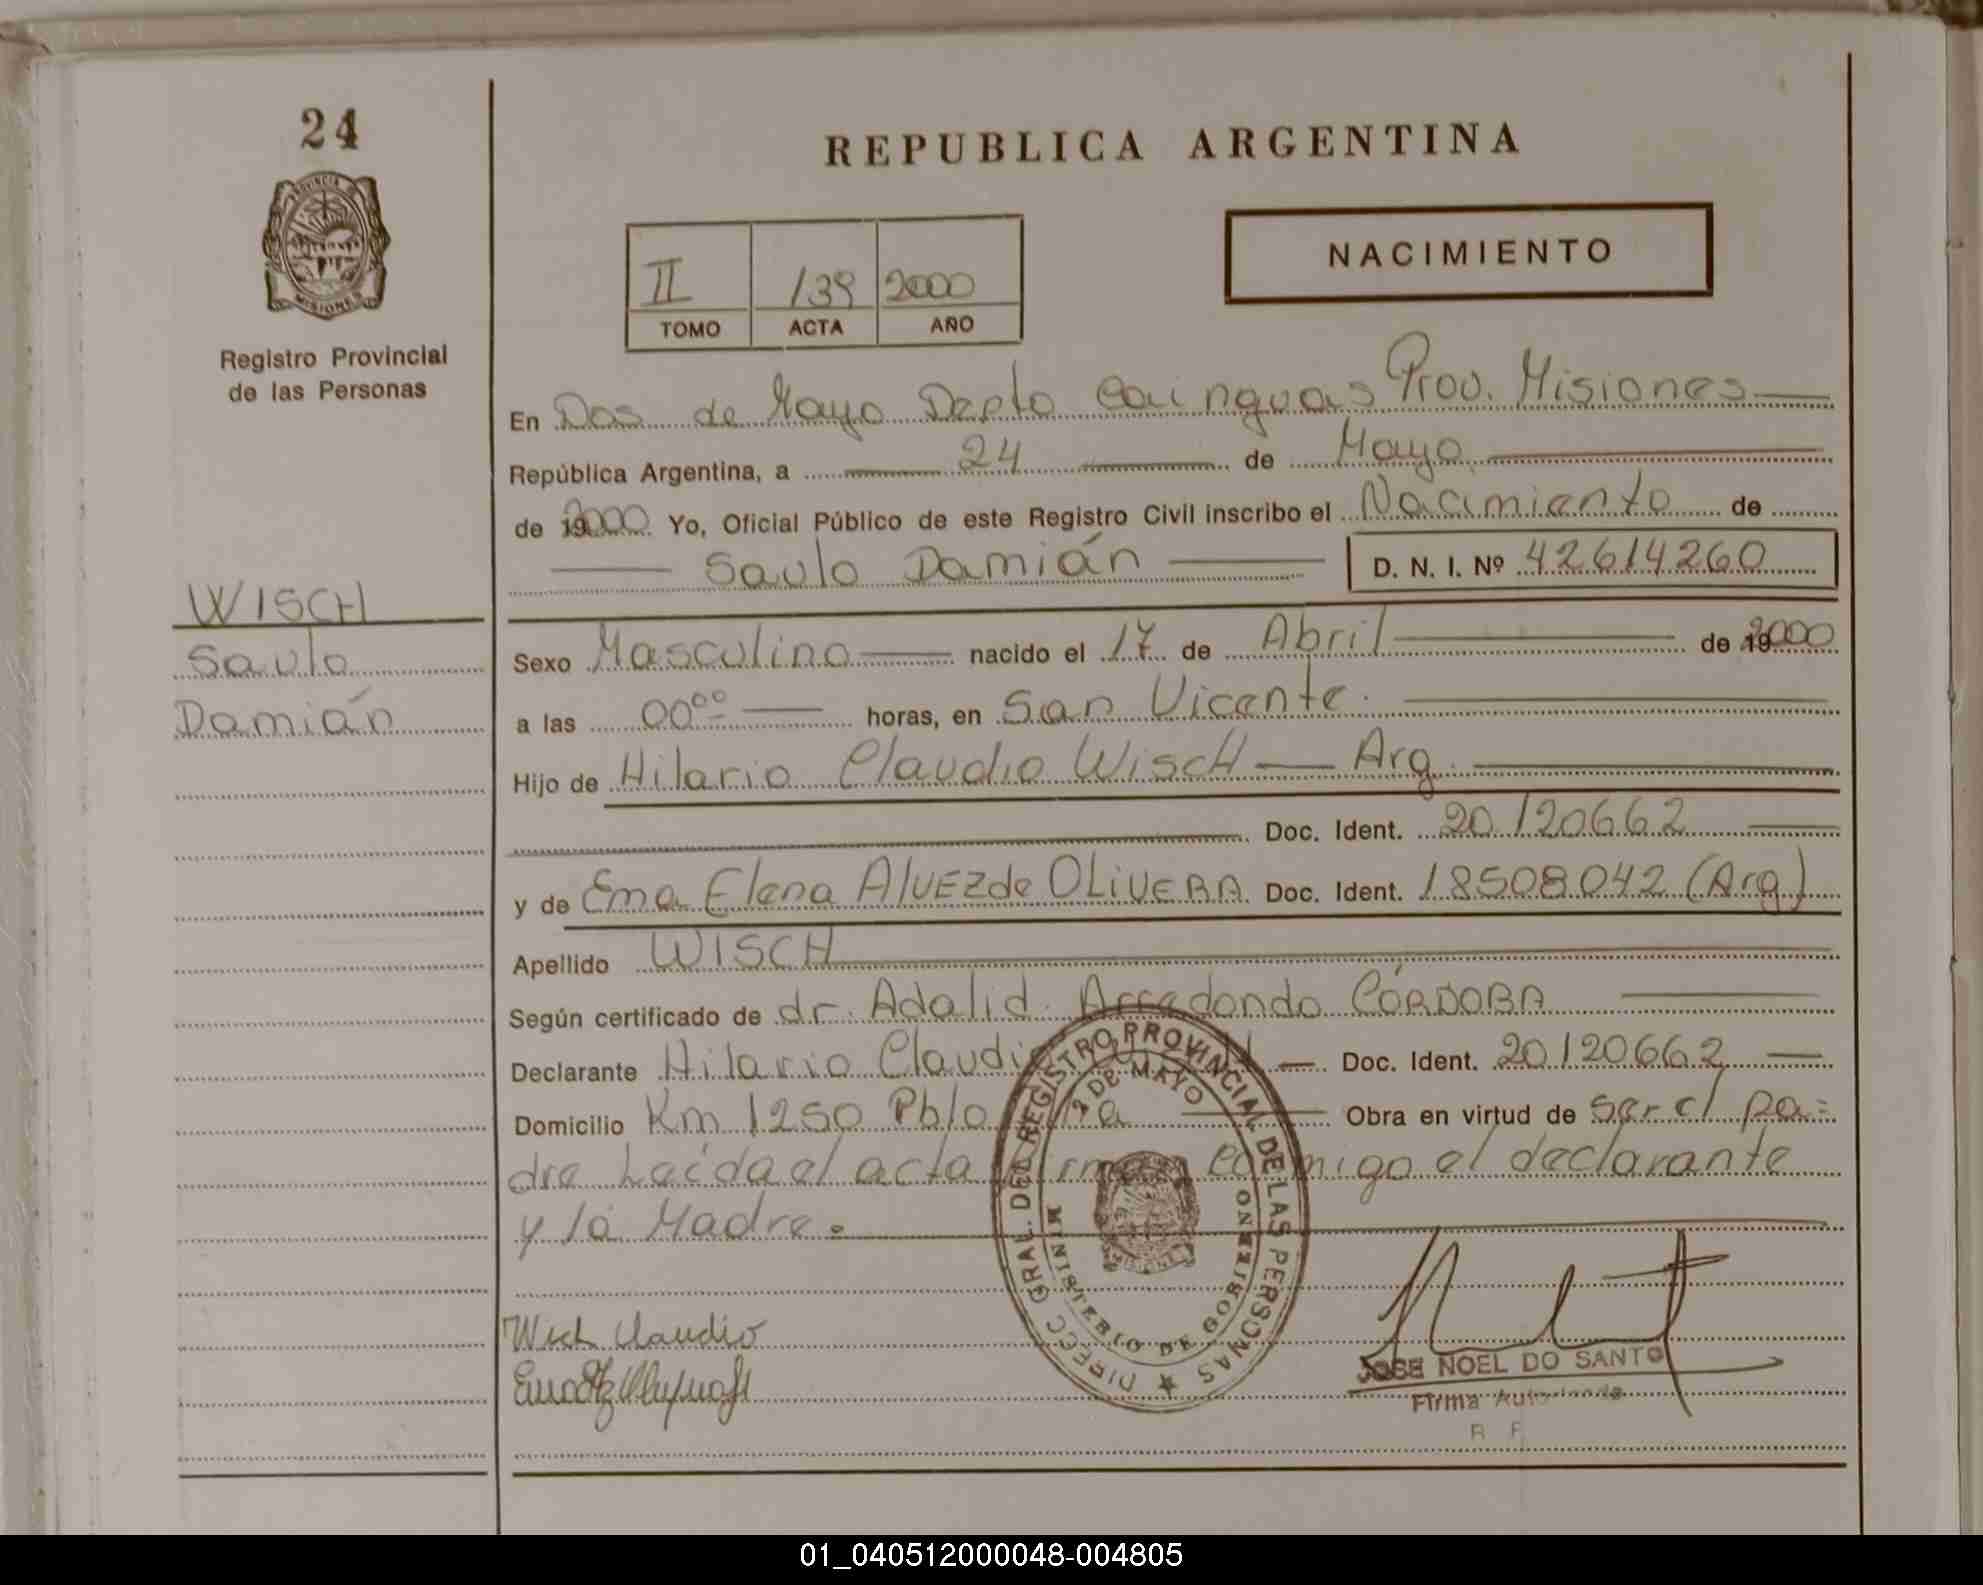 24
REPUBLICA ARGENTINA
PROVINCIA DE
MISIONES
Registro Provincial
de las Personas
NACIMIENTO
II 139 2000
TOMO ACTA AÑO
En Dos de Mayo Depto Cainguas Prov. Misiones
República Argentina, a 24 de Mayo
de 2000 Yo, Oficial Público de este Registro Civil inscribo el Nacimiento de
Saulo Damián D. N. I. Nº 42614260
WISCH
Saulo
Damián
Sexo Masculino nacido el 17 de Abril de 2000
a las 00°° horas, en San Vicente.
Hijo de Hilario Claudio Wisch Arg.
Doc. Ident. 20120662
y de Ema Elena Alvez de OLIVERA Doc. Ident. 18508042 (Arg)
Apellido WISCH
Según certificado de dr. Adalid Arredondo CÓRDOBA
Declarante Hilario Claudio Doc. Ident. 20120662
Domicilio Km 1250 Pblo Obra en virtud de ser el pa=
dre Leída el acta conmigo el declarante
y la Madre.
DIRECC GRAL. DEL REGISTRO PROVINCIAL DE LAS PERSONAS
2 DE MAYO
MINISTERIO DE GOBIERNO
Wich Claudio
JOSE NOEL DO SANTO
Firma
01_040512000048-004805